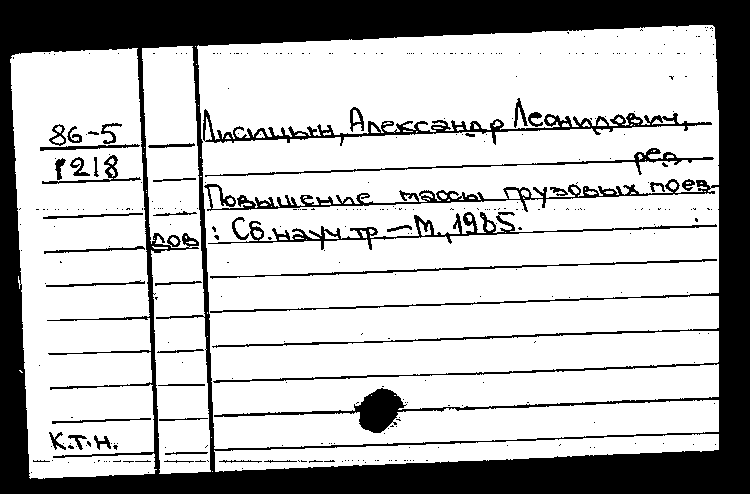 86-5 Лисицын, Александр Леонидович,
1218 ред.
Повышение массы грузовых поез-
дов : Сб. науч. тр. — М., 1985.
К.Т.Н.